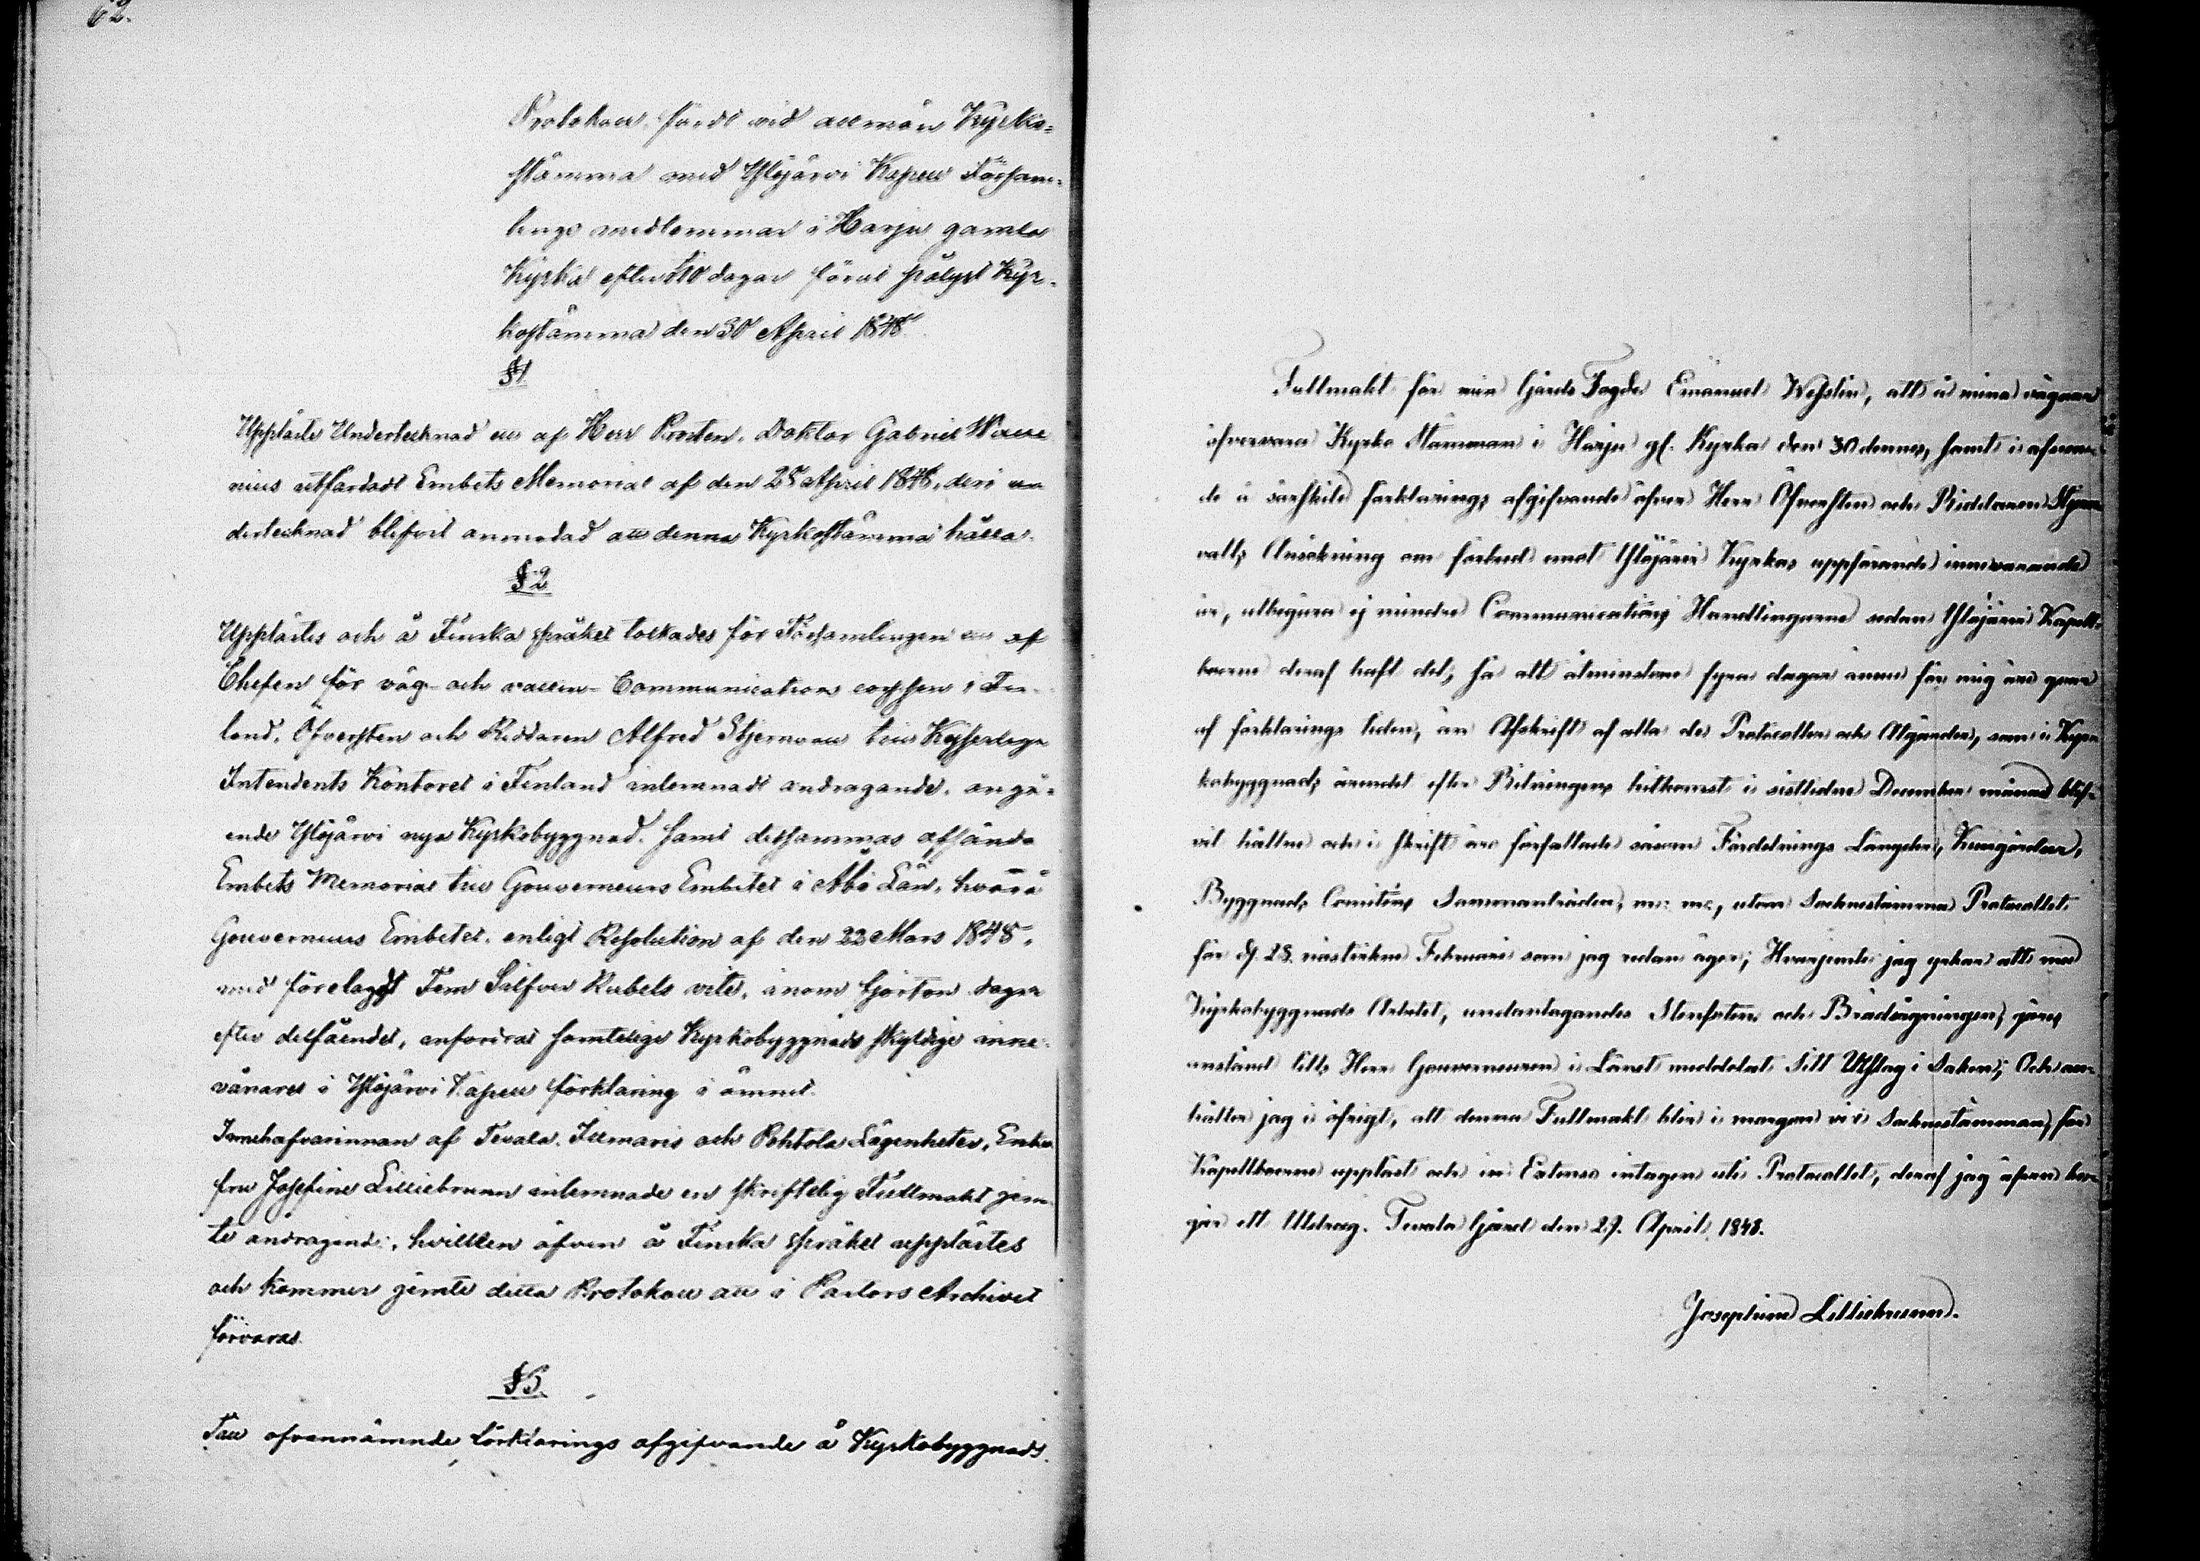 62.
Protokoll fördt vid allmän Kyrko-
stämma med Ylöjärvi Kapell Försam-
lings medlemmar i Harju gamla
Kyrka efter 10 dagar förut pålyst Kyr-
kostämma den 30 April 1848.
§1
Upplästes Undertecknad ett af Herr Prosten, Doktor Gabriel
nius utfärdadt Embets Memorial af den 25 April 1848, deri un
dertecknad blifvit anmodad att denna Kyrkostämma hålla.
§2
Upplästes och å Finska språket tolkades för Församlingen ett af
Chefen för väg- och vatten-Communication corpsen i Fin-
land, Öfversten och Riddaren Alfred Stjernvall till Kejserliga
Intendents Kontoret i Finland inlemnadt andragande, angå-
ende Ylöjärvi nya Kyrkobyggnad. samt detsammas afsände
Embets Memorial till Gouverneurs Embetet i Åbo Län, hvarå
Gouverneurs Embetet, enligt Resolution af den 22 Mars 1848,
med förelagdt Fem Silfver Rubels vite, inom fjorton dagar
efter delfåendet, anfordrat samtelige Kyrkobyggnads skyldige inne-
vånares i Ylöjärvi Kapell förklaring i ämnet.
Innehafvarinnan af Tevala, Ilmaris och Pohtola Lägenheter, Enke
fru Josefine Lilliebrunn inlemnade en skriftelig Fullmakt jem-
te andragende, hvilken äfven å Finska språket upplästes
och kommer jemte detta Protokoll att i Pastors Archivet
förvaras.
§3.
Till ofvannämnde förklarings afgifvande å Kyrkobyggnads
Fullmakt för min Gårds Fogde Emanuel Wesslin, att å mina vägnar
öfvervara Kyrko Stämman i Harju gl. Kyrka den 30 dennes, samt i afseen-
de å särskild förklarings afgifvande öfver Herr Öfverstens och Riddaren Stjern
valls Ansökning om förbud emot Ylöjärvi Kyrkas uppförande innevarande
år, utbegära ej mindre Communications Handlingarne sedan Ylöjärvi Kapell-
boerne deraf haft del, så att åtminstone fyra dagar ännu för mig äro qvar
af förklarings tiden, än Afskrift af alla de Protocoller och Åtgärder, som i Kyr-
kobyggnads ärendet efter Ritningens hitkomst i sistledne December månad blif-
vit hållne och i skrift äro författade såsom Fördelnings Längder,
Byggnads Comiténs Sammanträden, m. m., utom Sockenstämma Protocollet
för d. 28. nästvikne Februari som jag redan äger; Hvarjemte jag yrkar att med
Kyrkobyggnads Arbetet, undantagandes Stenfoten och Brädsågningen, göres
anstånd tills Herr Gouverneuren i Länet meddelat sitt Utslag i Saken; Och an-
håller jag i öfrigt, att denna Fullmakt blir i morgon vid Sockenstämman, för
Kapellboerne uppläst och in Extenso intagen uti Protocollet, deraf jag äfven be-
gär ett Utdrag. Tevala Gård den 29. April 1848.
Josephine Lilliebrunn.